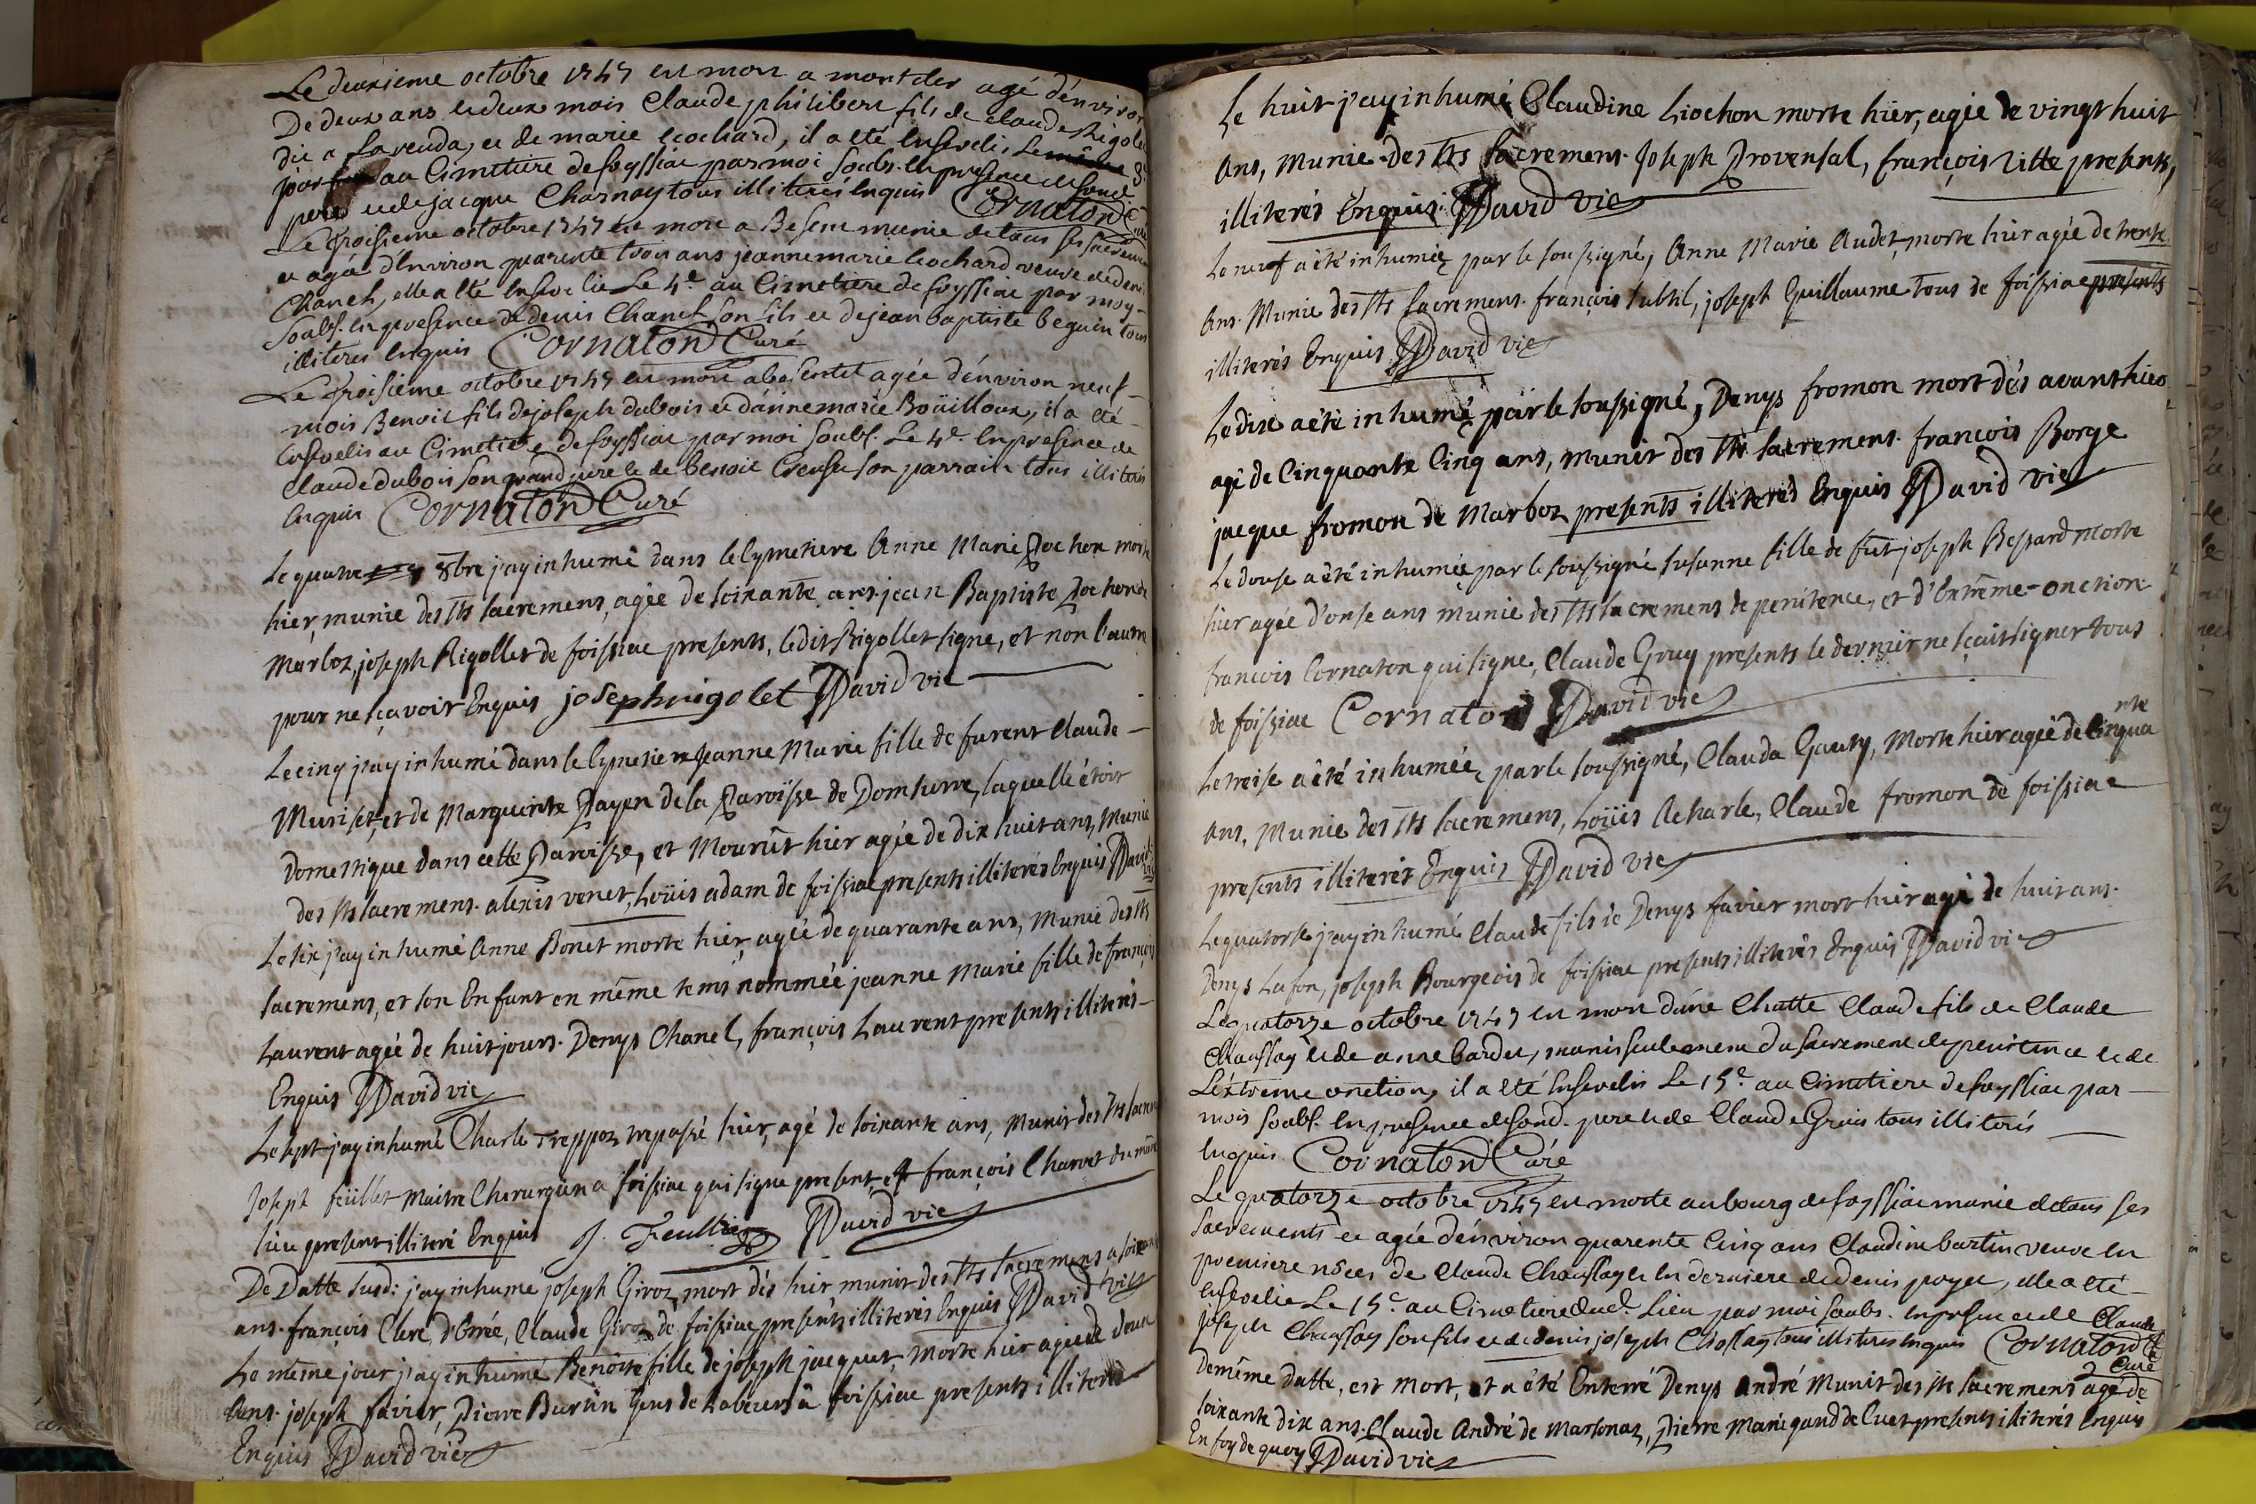 Le deuxieme octobre 1747 est mort a montcler agé d'environ
De deux ans et deux mois Claude philibert fils de claude Rigolet
dit a Lavenda, et de marie Cochard, il a été Ensevelis Le même
jour au Cimetiere de foyssiac par moi Soubs. En presence de Sond.
pere et de jacque Charnay tous illiterés Enquis Cornaton Curé
Le troisieme octobre 1747 est morte a Besent munie de tous ses sacrements
et agée d'Environ quarente trois ans jeanne marie Cochard veuve de denis
Chanel, elle a été Ensevelie Le 4e. au Cimetiere de foyssiac par moy
Soubs. En presence de denis Chanel son fils et de jean baptiste beguin tous
illiteres Enquis Cornaton Curé
Le troisieme octobre 1747 est mort a agée d'environ neuf
mois Benoit fils de joseph dubois et d'anne marie Boüilloux, il a été
Ensevelis au Cimetiere de foyssiac par moi Soubs. Le 4e. En presence de
Claude dubois son grand pere et de benoit Creuse son parrain tous illiterés
Enquis Cornaton Curé
Le quatre 8bre j'ay inhumé dans le Cymetiere Anne Marie Pochon morte
hier, munie des Sts Sacremens, agée de soixante ans. jean Baptiste Pochon de
Marboz, joseph Rigollet de foissiac presents, ledit Rigollet signe, et non l'autre
pour ne sçavoir Enquis joseph rigolet David vic
Le cinq j'ay inhumé dans le Cymetiere Jeanne Marie fille de furent Claude
Muriset, et de Marguerite Payen de la Paroisse de Domsurre, laquelle étoit
Domestique dans cette Paroisse, et Mourût hier agée de dix huit ans, Munie
des Sts Sacremens. alexis venet, Loüis adam de foissiac presents illiterés Enquis David vic
Le six j'ay inhumé Anne Bonet morte hier, agée de quarante ans, Munie des Sts
Sacremens, et son Enfant en même tems nommée jeanne Marie fille de françois
Laurent agée de huit jours. Denys Chanel, françois Laurent presents illiterés
Enquis David vic
Le sept j'ay inhumé Charle Treppoz trepassé hier, agé de soixante ans, Munir des Sts Sacrem
Joseph feüillet Maitre Cherurgien a foissiac qui signe present, et françois Charvet du même
lieu present illiteré Enquis J. Feullie David vic
De Datte susd: j'ay inhumé joseph Giroz mort dés hier, munir des Sts Sacremens a soixante
ans. françois Clere d'Etrée, Claude Giroz de foissiac presents illiterés Enquis David vic
Le même jour j'ay inhumé Benoite fille de joseph jacquet, Morte hier agée de deux
ans. joseph favier, Pierre Burtin Gens de Labeurs a foissiac presents illiterés
Enquis David vic
Le huit j'ay inhumé Claudine Liochon morte hier, agée de vingt huit
Ans, Munie des Sts Sacremens. Joseph Provensal, françois Vitte presents,
illiterés Enquis David vic
Le neuf a été inhumée par le soussigné, Anne Marie Audet, morte hier agée de trente
Ans. Munie des Sts Sacremens. françois subtil, joseph Guillaume tous de foissiac presents
illiterés Enquis David vic
Le dix a été inhumé par le soussigné, Denys fromon mort dés avant hier
agé de Cinquante Cinq ans, munir des Sts Sacremens. françois Borge
jacque fromon de Marboz presents illiterés Enquis David vic
Le douse a été inhumée par le soussigné susanne fille de fut joseph Bessard morte
hier agée d'onse ans munie des Sts Sacremens de penitence, et d'Extrême-onction
françois Cornaton qui signe, Claude Gruy presents le dernier ne sçait signer tous
de foissiac Cornaton David vic
Le treise a été inhumée, par le soussigné, Clauda Gauty, Morte hier agée de Cinquante
Ans, Munie des Sts Sacremens, Loüis Acharle, Claude fromon de foissiac
presents illiterés Enquis David vic
Le quatorse j'ay inhumé Claude fils de Denys favier mort hier agé de huit ans.
Denys Lafon, joseph Bourgeois de foissiac presents illiterés Enquis David vic
Le quatorze octobre 1747 est mort Chatte Claude fils de Claude
Chaussay et de anne bardet, munis seulement du Sacrement de penitence et de
L'extreme onction, il a été Ensevelis Le 15e. au Cimetiere de foyssiac par
moi Soubs. En presence de Sond. pere et de Claude Gruis tous illiterés
Enquis Cornaton Curé
Le quatorze octobre 1747 est morte au bourg de foyssiac munie de tous ses
Sacrements et agée d'environ quarente Cinq ans Claudine burtin veuve En
premiere nôces de Claude Chaussay et En derniere de denis payet, elle a été
Ensevelie Le 15e. au Cimetiere dud. Lieu par moi Soubs. En presence de Claude
joseph Chaussay son fils et de denis joseph Chossay tous illiteres Enquis Cornaton
Curé
De même datte, est mort, et a été Enterré Denys André Munir des Sts Sacremens agé de
soixante dix ans. Claude André de Marsonaz, Pierre Marégaud de Cuet presents illiterés Enquis
En foy de quoy David vic